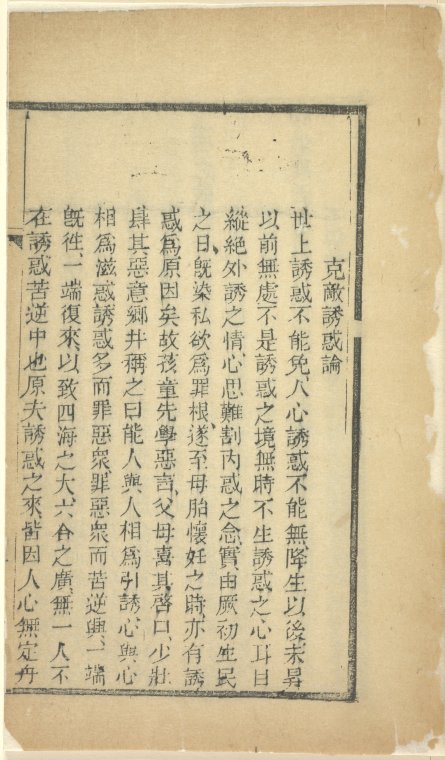 克敵誘惑論
世上誘惑不能免、人心誘惑不能無、降生以後、未昇
以前、無處不是誘惑之境、無時不生誘惑之心、耳目
縱絕外誘之情、心思難割內惑之念、實由厥初生民
之日、旣染私欲爲罪根、遂至母胎懷妊之時、亦有誘
惑爲原因矣、故孩童先學惡言、父母喜其啓口、少壯
肆其惡意、鄉井稱之曰能、人與人相爲引誘、心與心
相爲滋惑、誘惑多而罪惡衆、罪惡衆而苦逆興、一端
旣徃、一端復來、以致四海之大、六合之廣、無一人不
在誘惑苦逆中也、原夫誘惑之來、皆因人心無定、舟